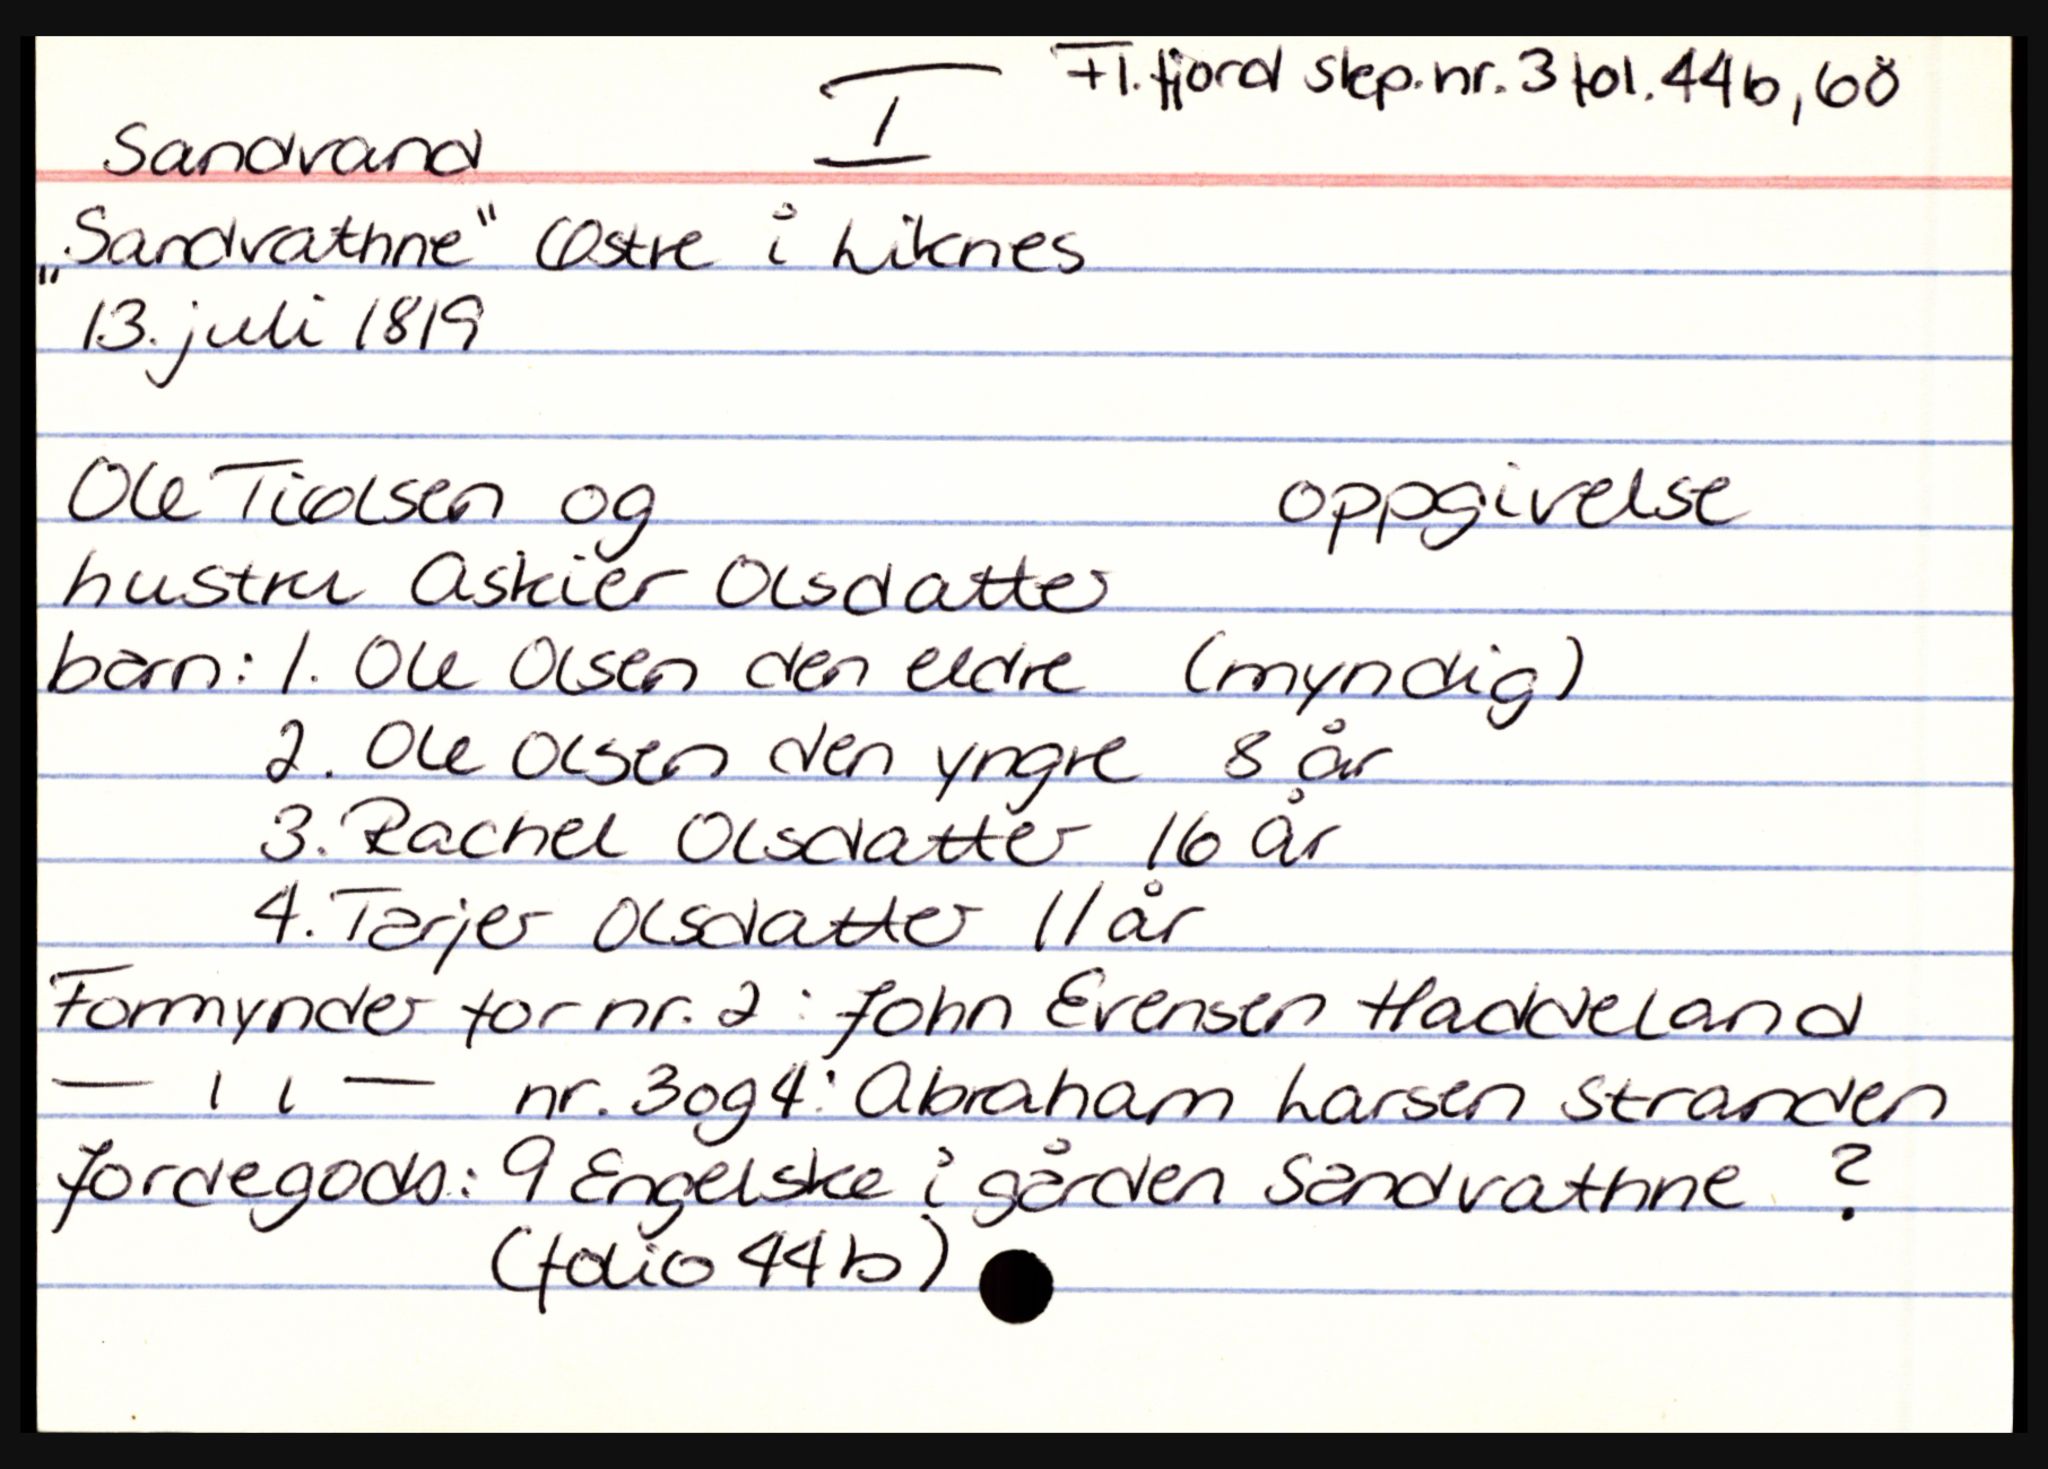 I Fl.fjord skp.nr.3 fol.44b,60
Sandvand
„Sandvathne“ Østre i Liknes
13. juli 1819
Ole Tiølsen og oppgivelse
hustru Askier Olsdatter
barn: 1. Ole Olsen den eldre (myndig)
2. Ole Olsen den yngre 8 år
3. Rachel Olsdatter 16 år
4. Tarjer Olsdatter 11 år
Formynder for nr. 2: John Evensen Haddeland
— ı ı — nr. 3 og 4: Abraham Larsen Stranden
Jordegods: 9 Engelske i gården Sandvathne ?
(folio 44b)